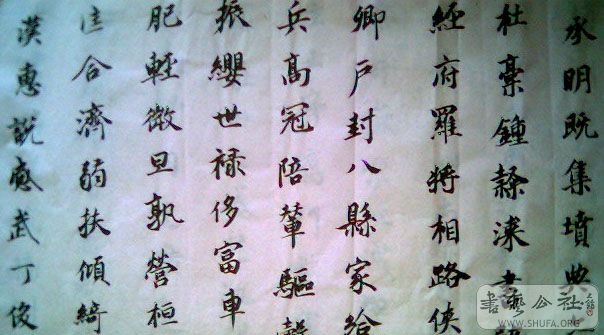 承明既集墳典
杜稾鍾隸漆書
經府羅將相路俠
卿戶封八縣家給
兵高冠陪輦驅轂
振纓世祿侈富車
肥輕微旦孰營桓
匡合濟弱扶傾綺
漢惠說感武丁俊
書藝公社
WWW.SHUFA.ORG